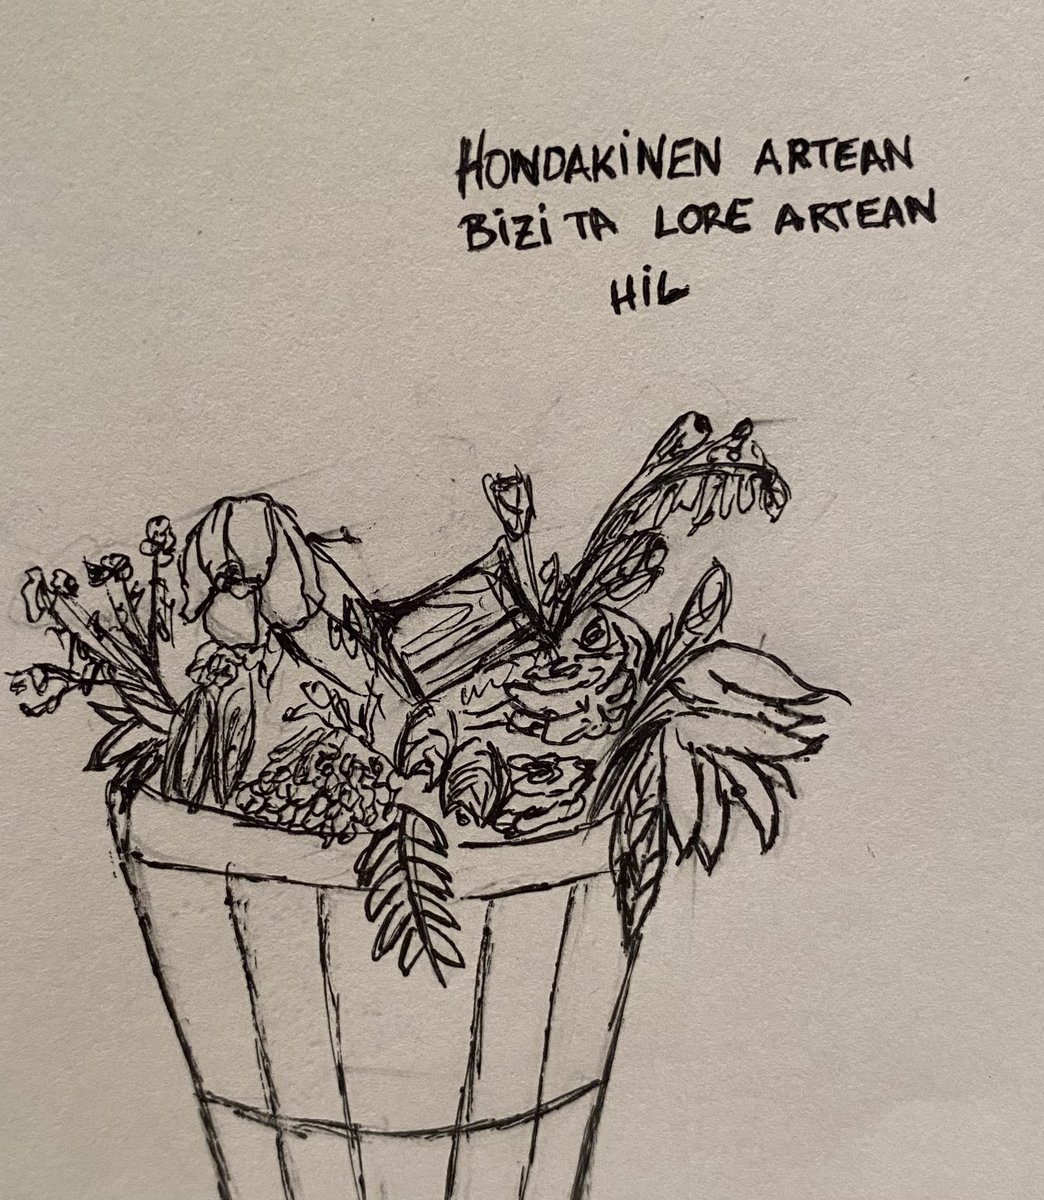 HONDAKINEN ARTEAN
BIZI TA LORE ARTEAN
HIL